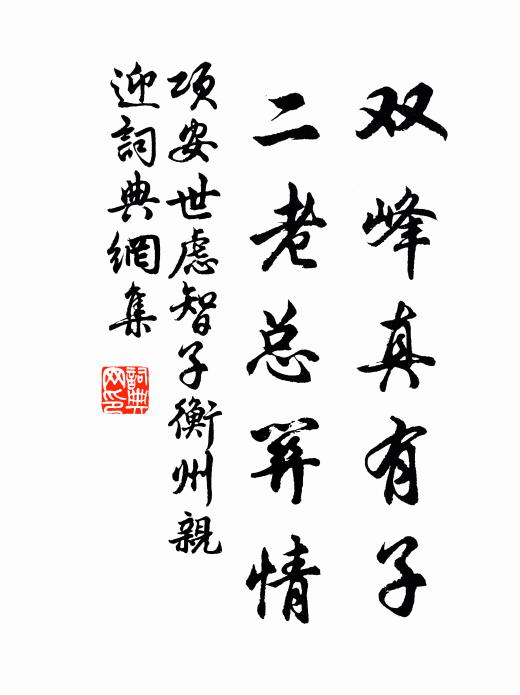 双峰真有子
二老总关情
项安世虑智子衡州親
迎詞典網集
詞典网印